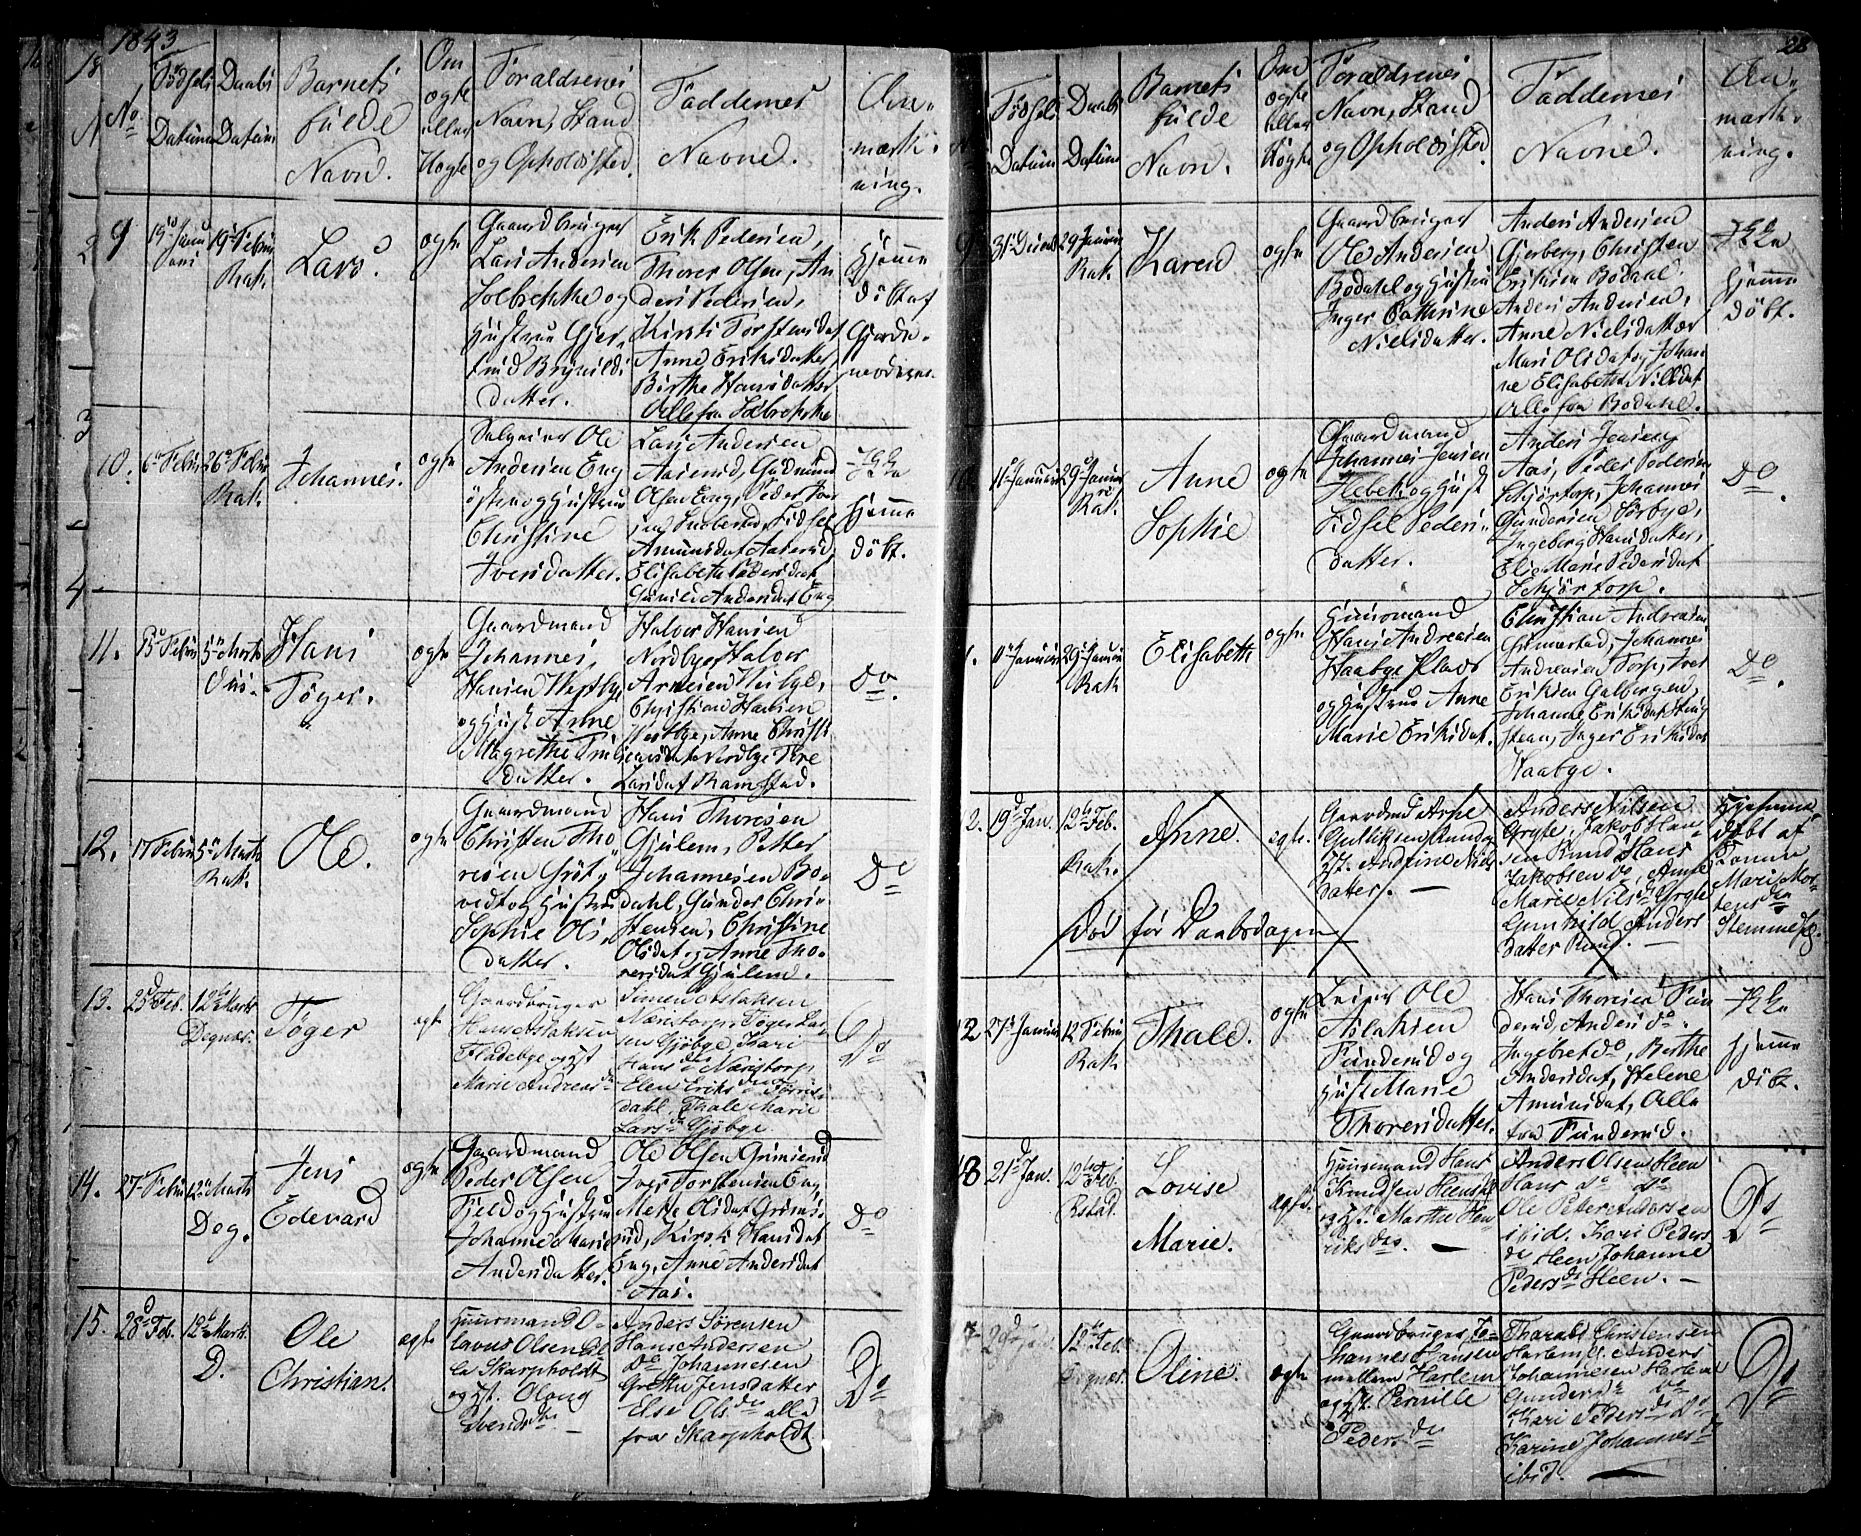 1843
No
Fødsels
Datum
Daabs
Datum
Barnets
fulde
Navn.
Om
ægte
eller
Uægte
Forældrenes
Navn, Stand
og Opholdssted.
Faddernes
Navne.
An-
mærk-
ning.
9
19de Janu
19de Febru
Rak.
Lars.
ægte
Gaardbruger
Lars Andersen
Solbrekke og
Hustrue Gjer-
trud Brynilds
datter.
Erik Pedersen,
Thorer Olsen, An
ders Pedersen,
Kirsti Torstensdat
Anne Eriksdatter
Birthe Hansdatter
Alle fra Solbrekke
hjemme
døbt af
Gjorde-
moderen.
10.
6te Febru
26de Febru
Rak.
Johannes.
ægte
Ole
Andersen Eng
østen og Hustrue
Christine
Iversdatter.
Lars Andersen
Aaserud, Gudmund
Olsen Eng, Peder
Sidsel
Amunsdat Aaserud,
Elisabeth Pedersdat
Gunild Andersdat Eng
hjemme
døbt.
11.
15de Febru
5te Marts
Hans
Tøger.
ægte
Gaardmand
Johannes
Hansen Westby
og Hust. Anne
Magrethe
datter.
Halvor Hansen
Nordbye, Halvor
Arnesen
Christian Hansen
Westbye, Anne Christi
ensdat Nordbye
Larsdat Ramstad.
Do.
12.
17 Febru
5te Marts
Rak.
Ole.
ægte
Gaardmand
Christen Tho-
resen Grøt-
vedt og Hustrue
Sophie Ols-
datter.
Hans Thoresen
Gjulem, Petter
Johannesen Bo-
dahl, Gunder Chri-
stensen, Christine
Olsdat og Anne Tho-
resdat Gjulem.
Do
13.
25d Feb.
12te Marts
Degnæs.
Tøger
ægte
Gaardbruger
Hans Aslaksen
Fladebye og Hst
Marie Andreasdr
Simen Aslaksen
Næristorp, Tøger Lar-
sen Gjøbye, Kari
Hansdr Næristorp
Elen Eriksdr
dahl, Thale Marie
Larsdr Gjøbye.
Do
14.
27 Febru
12te Marts
Deg.
Jens
Edevard
ægte
Gaardmand
Peder Olsen
Fjeld og Hustrue
Johanne Marie
Andersdatter.
Ole Olsen Grimsrud
Iver Torstensen Eng,
Mette Olsdat Grims-
rud, Kirsti Hansdat
Eng, Anne Andersdat
Aas.
Do
15.
28d Feb.
12te Marts.
D.
Ole
Christian.
ægte
Huusmand O-
laves Olsen
Skarpholdt
og Hst. Oloug
Svendsdtr. —
Anders Sørensen
Hans Andersen
Do Johannesen
Grethe Jensdatter
Else Olsdtr alle
fra Skarpholdt.
Do
28
Fødsels
Datum
Daabs
Datum
Barnets
fulde
Navn.
Om
ægte
eller
Uægte
Forældrenes
Navn, Stand
og Opholdssted
Faddernes
Navne.
An-
mærk-
ning.
9
31te Decemb
29de Januari
Rak.
Karen
ægte
Gaardbruger
Ole Andersen
Bødahl og Hustru
Inger Cathrine
Nielsdatter.
Anders Andersen
Gjerberg, Christen
Eriksen Bødahl
Anders Andersen,
Anne Nielsdatter
Mari Olsdat og Johan
ne Elisabeth Nilsdat
Alle fra Bodahl.
hjemme
døbt.
11te Januari
29de Januari
Rak.
Anne
Sophie
ægte
Gaardmand
Johannes Jensen
Flebek og Hust
Sidsel Peders-
datter.
Anders Jensen
Aas, Peder Pedersen
Schjørtorp, Johannes
Gundersen Sørbye,
Ingeborg Hansdatter,
Else Marie Pedersdat
Schjørtorp.
Do.
11te Januari
29de Januari
Rak
Elisabeth
ægte
Huusmand
Hans Andreasen
Haabye Plads
og Hustrue Anne
Marie Eriksdat.
Christian Andreasen
Johannes
Andreasen Torp, Iver
Eriksen Galbergen,
Johanne Eriksdat
Inger Eriksdat
Haabye.
Do.
12.
19d Jan.
12te Feb.
Rak.
Anne.
ægte.
Gulliksen Rund og
Hst. Andrine Niels
datter. —
Anders Nilsen
Gryte, Jakob Han-
sen Rund, Hans
Jakobsen do, Anne
Marie Nilsdr Gryte
Gunhild Anders
datter Rund. —
Hjemme
døbt af
Konne
Mari Mor-
tensdtr
Død før Daabsdagen
12
27de Januari
12 Febru
Rak
Thale.
ægte
Leier Ole
Aslaksen
Funderud og
Hust Marie
Thoresdatter.
Hans Thoresen Fun
derud, Anders do.
Ingebret do, Berthe
Andersdat, Helene
Amunsdat, Alle
fra Funderud.
hjemme
døbt.
13
21d Jan.
12te Feb.
Lovise
Marie.
ægte.
Huusmand Hans
Knudsen Heens
og Hst. Marthe Hen-
riksdtr. —
Anders Olsen Heen
Hans do do
Ole Peter Pedersen
ibid. Kari Peders
dr Heen, Johanne
Pedersdr Heen. —
Do
29d Jan.
12te Feb.
Degnæs.
Oline.
ægte
Gaardbruger Jo-
hannes Hansen
mellem Harlem
og Hst. Pernille
Pedersdtr
Tharald Christensen
Harlem, Anders
Johannesen Harlem
Gunder do
Kari Pedersdr do
Karine Johannesdr
ibid. —
Do